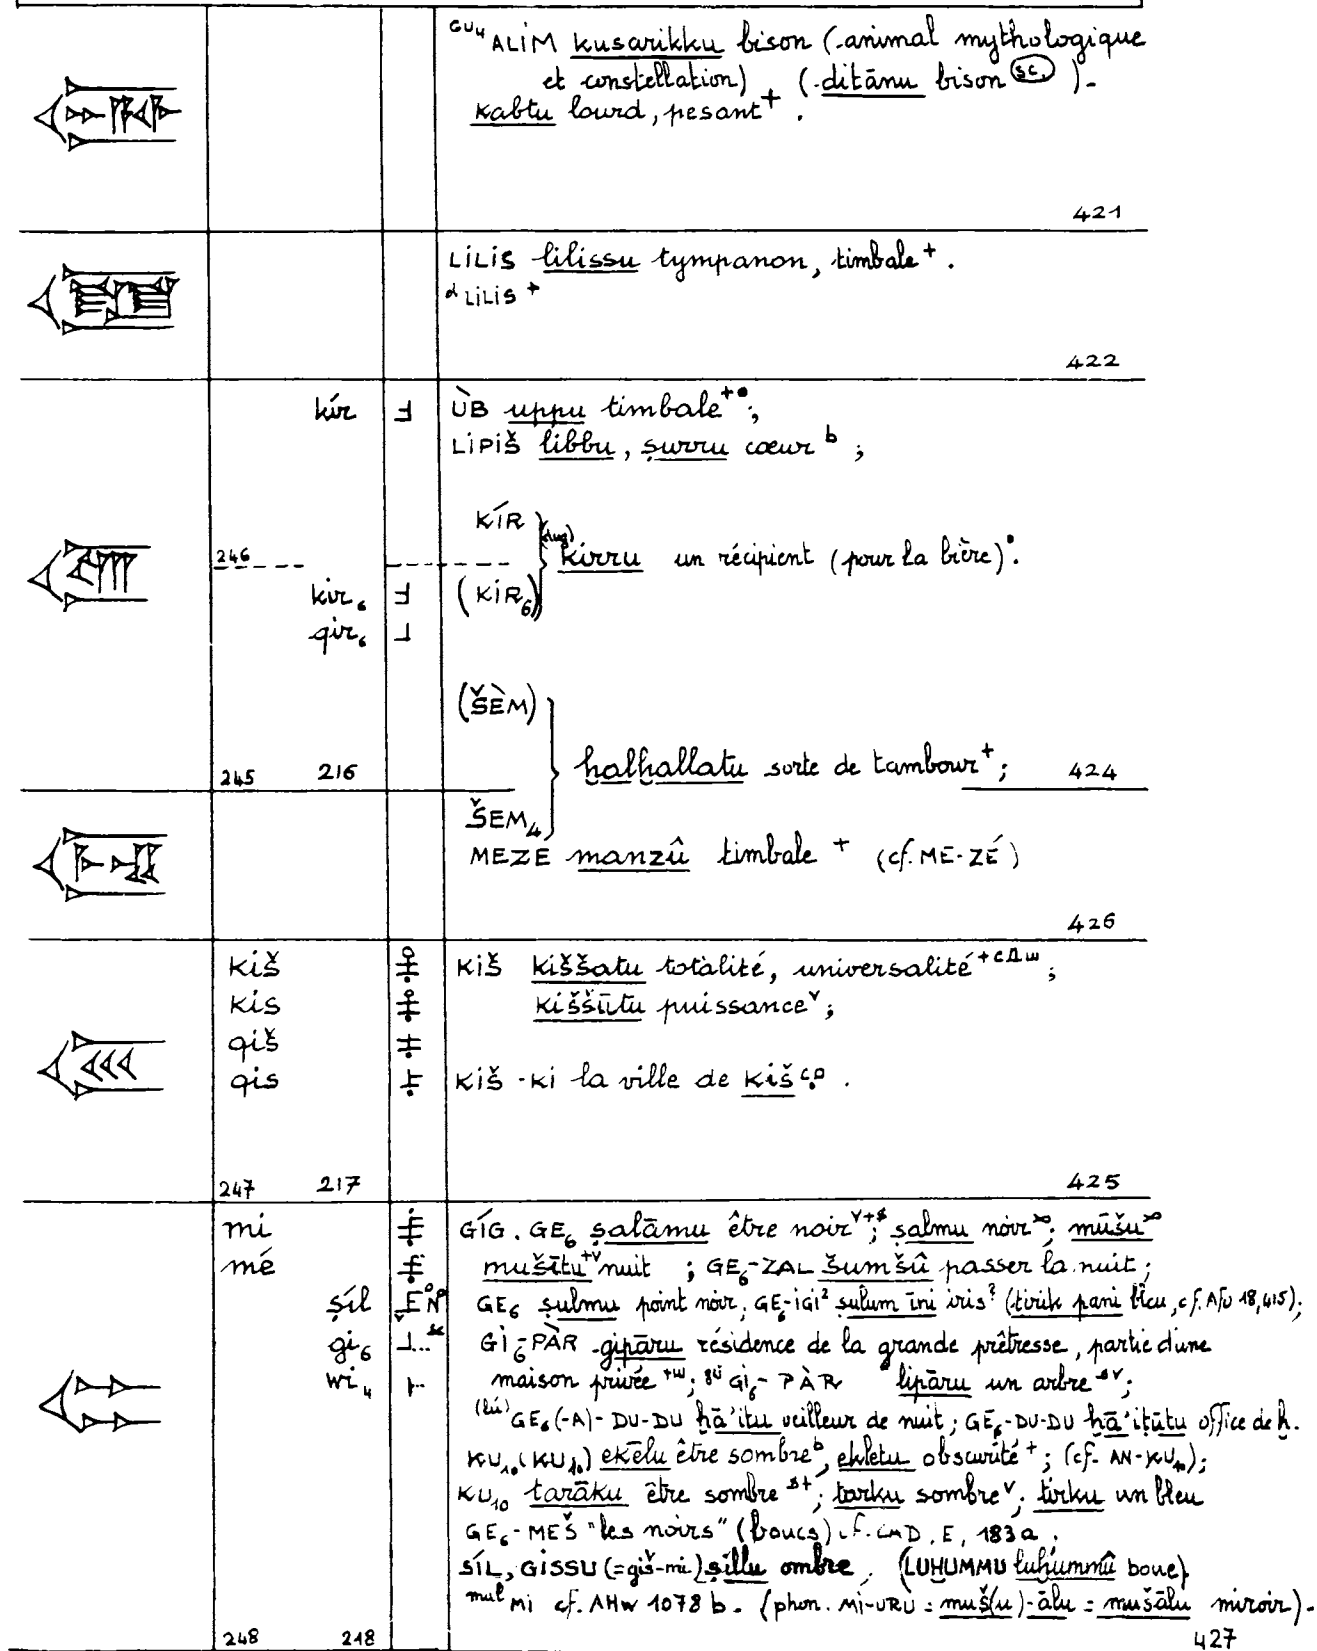 GU₄ ALIM kusarikku bison (animal mythologique
et constellation) (ditānu bison sc.).
kabtu lourd, pesant⁺.
421
LILIS lilissu tympanon, timbale⁺.
ᵈLILIS⁺
422
kír ÙB uppu timbale⁺•;
LIPIŠ libbu, ṣurru cœur ᵇ;
KÍR
246 (dug) kirru un récipient (pour la bière)•.
kir₆ (KIR₆)
qir₆
(ŠÈM)
245 216 ḫalḫallatu sorte de tambour⁺; 424
ŠEM₄
MEZÉ manzû timbale⁺ (cf. ME-ZÉ)
426
kiš KIŠ kiššatu totalité, universalité⁺;
kis kiššūtu puissance ᵛ;
qiš
qis KIŠ-KI la ville de Kiš.
247 217 425
mi GÍG. GE₆ ṣalāmu être noir; ṣalmu noir; mūšu
mé mušītu nuit; GE₆-ZAL šumšû passer la nuit;
ṣíl GE₆ ṣulmu point noir; GE₆-IGI² ṣulum īni iris? (tirik pani bleu, cf. AfO 18,415);
gi₆ GI₆-PÀR gipāru résidence de la grande prêtresse, partie d'une
wi₄ maison privée; GI₆-PÀR lipāru un arbre;
(lú) GE₆(-A)-DU-DU ḫā'iṭu veilleur de nuit; GE₆-DU-DU ḫā'iṭūtu office de ḫ.
KU₁₀(KU₁₀) ekēlu être sombre ᵇ, ekletu obscurité⁺; (cf. AN-KU₁₀);
KU₁₀ tarāku être sombre; tarku sombre ᵛ; tirku un bleu
GE₆-MEŠ "les noirs" (boucs) cf. CAD, E, 183a.
SÍL, GISSU (=giš-mi) ṣillu ombre. (LUḪUMMU luḫummû boue)
mul MI cf. AHw 1078 b. (phon. MI-URU = muš(u)-ālu = mušālu miroir).
248 218 427